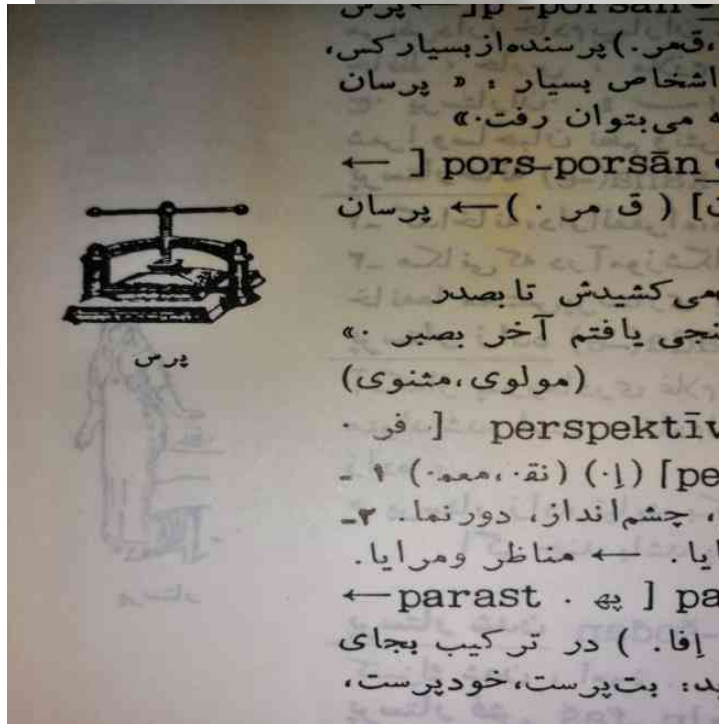 p-porsān ] ← پرس
،قمر.) پرسنده‌از بسیار کس،
اشخاص بسیار : « پرسان
می‌بتوان رفت.»
pors-porsān [ ←
] ( ق مر . ) ← پرسان
می کشیدش تا بصدر
یافتم آخر بصبر .»
(مولوی،مثنوی)
perspektīv [ فر .
pe] (اِ.) (نق.،معم.) ۱ -
، چشم‌انداز، دورنما. ۲-
. ← مناظر ومرایا.
parast . [ په pa ←
اِفا. ) در ترکیب بجای
: بت‌پرست،خودپرست،
پرس